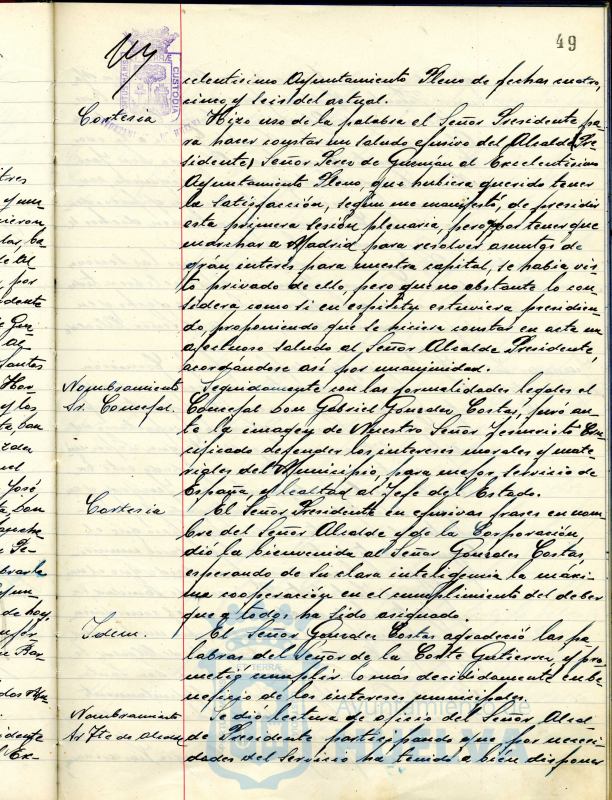 49
celentísimo Ayuntamiento Pleno de fechas cuatro,
cinco y seis del actual.
Cortesia
Hizo uso de la palabra el Señor Presidente pa-
ra hacer constar un saludo efusivo del Alcalde Pre-
sidente, Señor Perez de Guzmán al Excelentísimo
Ayuntamiento Pleno, que hubiera querido tener
la satisfacción, según me manifestó, de presidir
esta primera sesión plenaria, pero por tener que
marchar a Madrid para resolver asuntos de
gran interés para nuestra capital, se había vis-
to privado de ello, pero que no obstante lo con-
sidera como si en espíritu estuviera presidien-
do, proponiendo que se hiciera constar en acta un
afectuoso saludo al Señor Alcalde Presidente,
acordándose así por unanimidad.
Nombramiento
Sr. Concejal.
Seguidamente con las formalidades legales el
Concejal Don Gabriel Gonzalez Costas, juró an-
te la imagen de Nuestro Señor Jesucristo Cru-
cificado defender los intereses morales y mate-
riales del Municipio, para mejor servicio de
España, y lealtad al Jefe del Estado.
Cortesia
El Señor Presidente en efusivas frases en nom-
bre del Señor Alcalde y de la Corporación,
dió la bienvenida al Señor Gonzalez Costas,
esperando de su clara inteligencia la máxi-
ma cooperación en el cumplimiento del deber
que a todos ha sido asignado.
Idem.
El Señor Gonzalez Costas agradeció las pa-
labras del Señor de la Corte Gutierrez, y pro-
metió cumplir lo más decididamente en be-
neficio de los intereses municipales.
Nombramiento
Sr. Tte de Alcalde
Se dió lectura de oficio del Señor Alcal-
de Presidente participando que por necesi-
dades del Servicio ha tenido a bien disponer
CUSTODIA
Ayuntamiento de
HUELVA